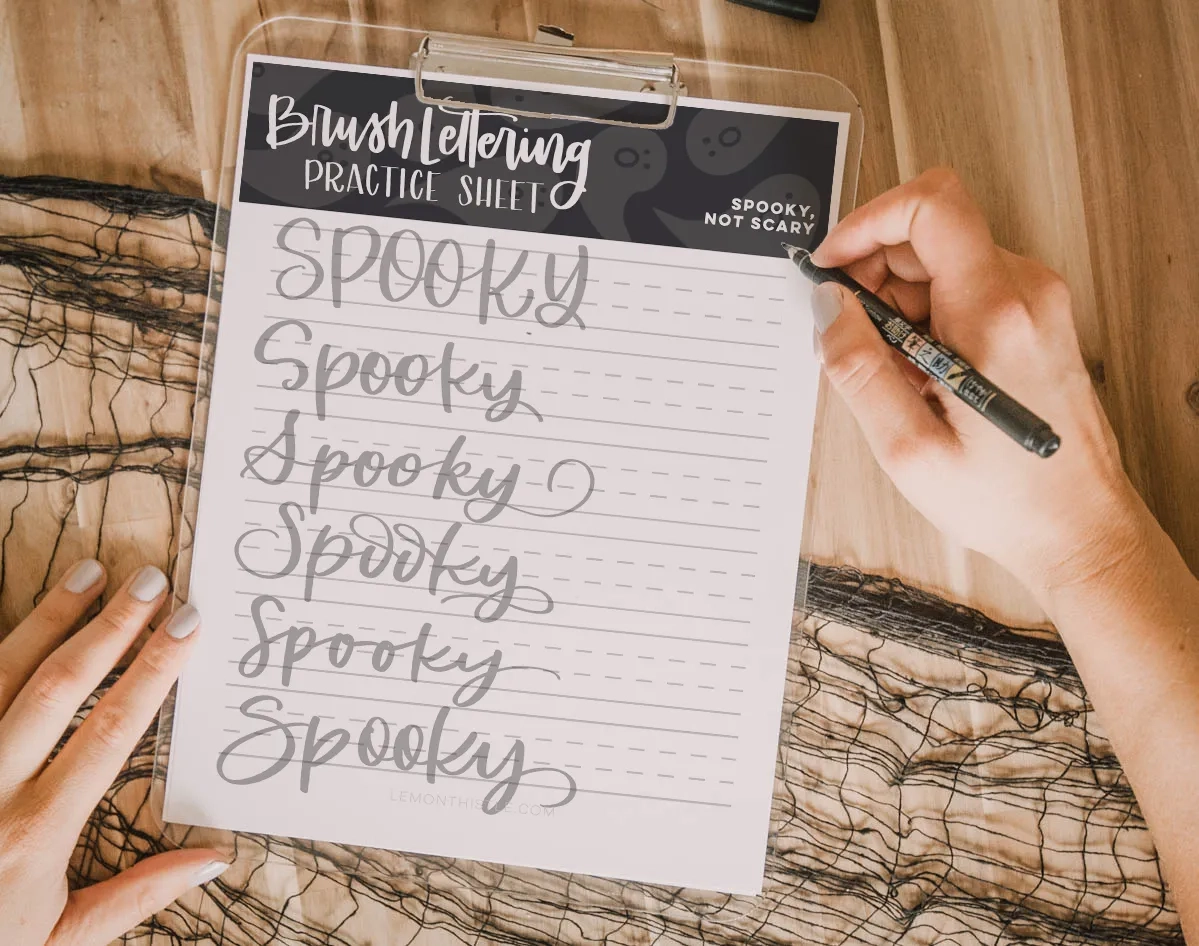 Brush Lettering
PRACTICE SHEET
SPOOKY,
NOT SCARY
SPOOKY
Spooky
Spooky
Spooky
Spooky
Spooky
LEMONTHISTLE.COM